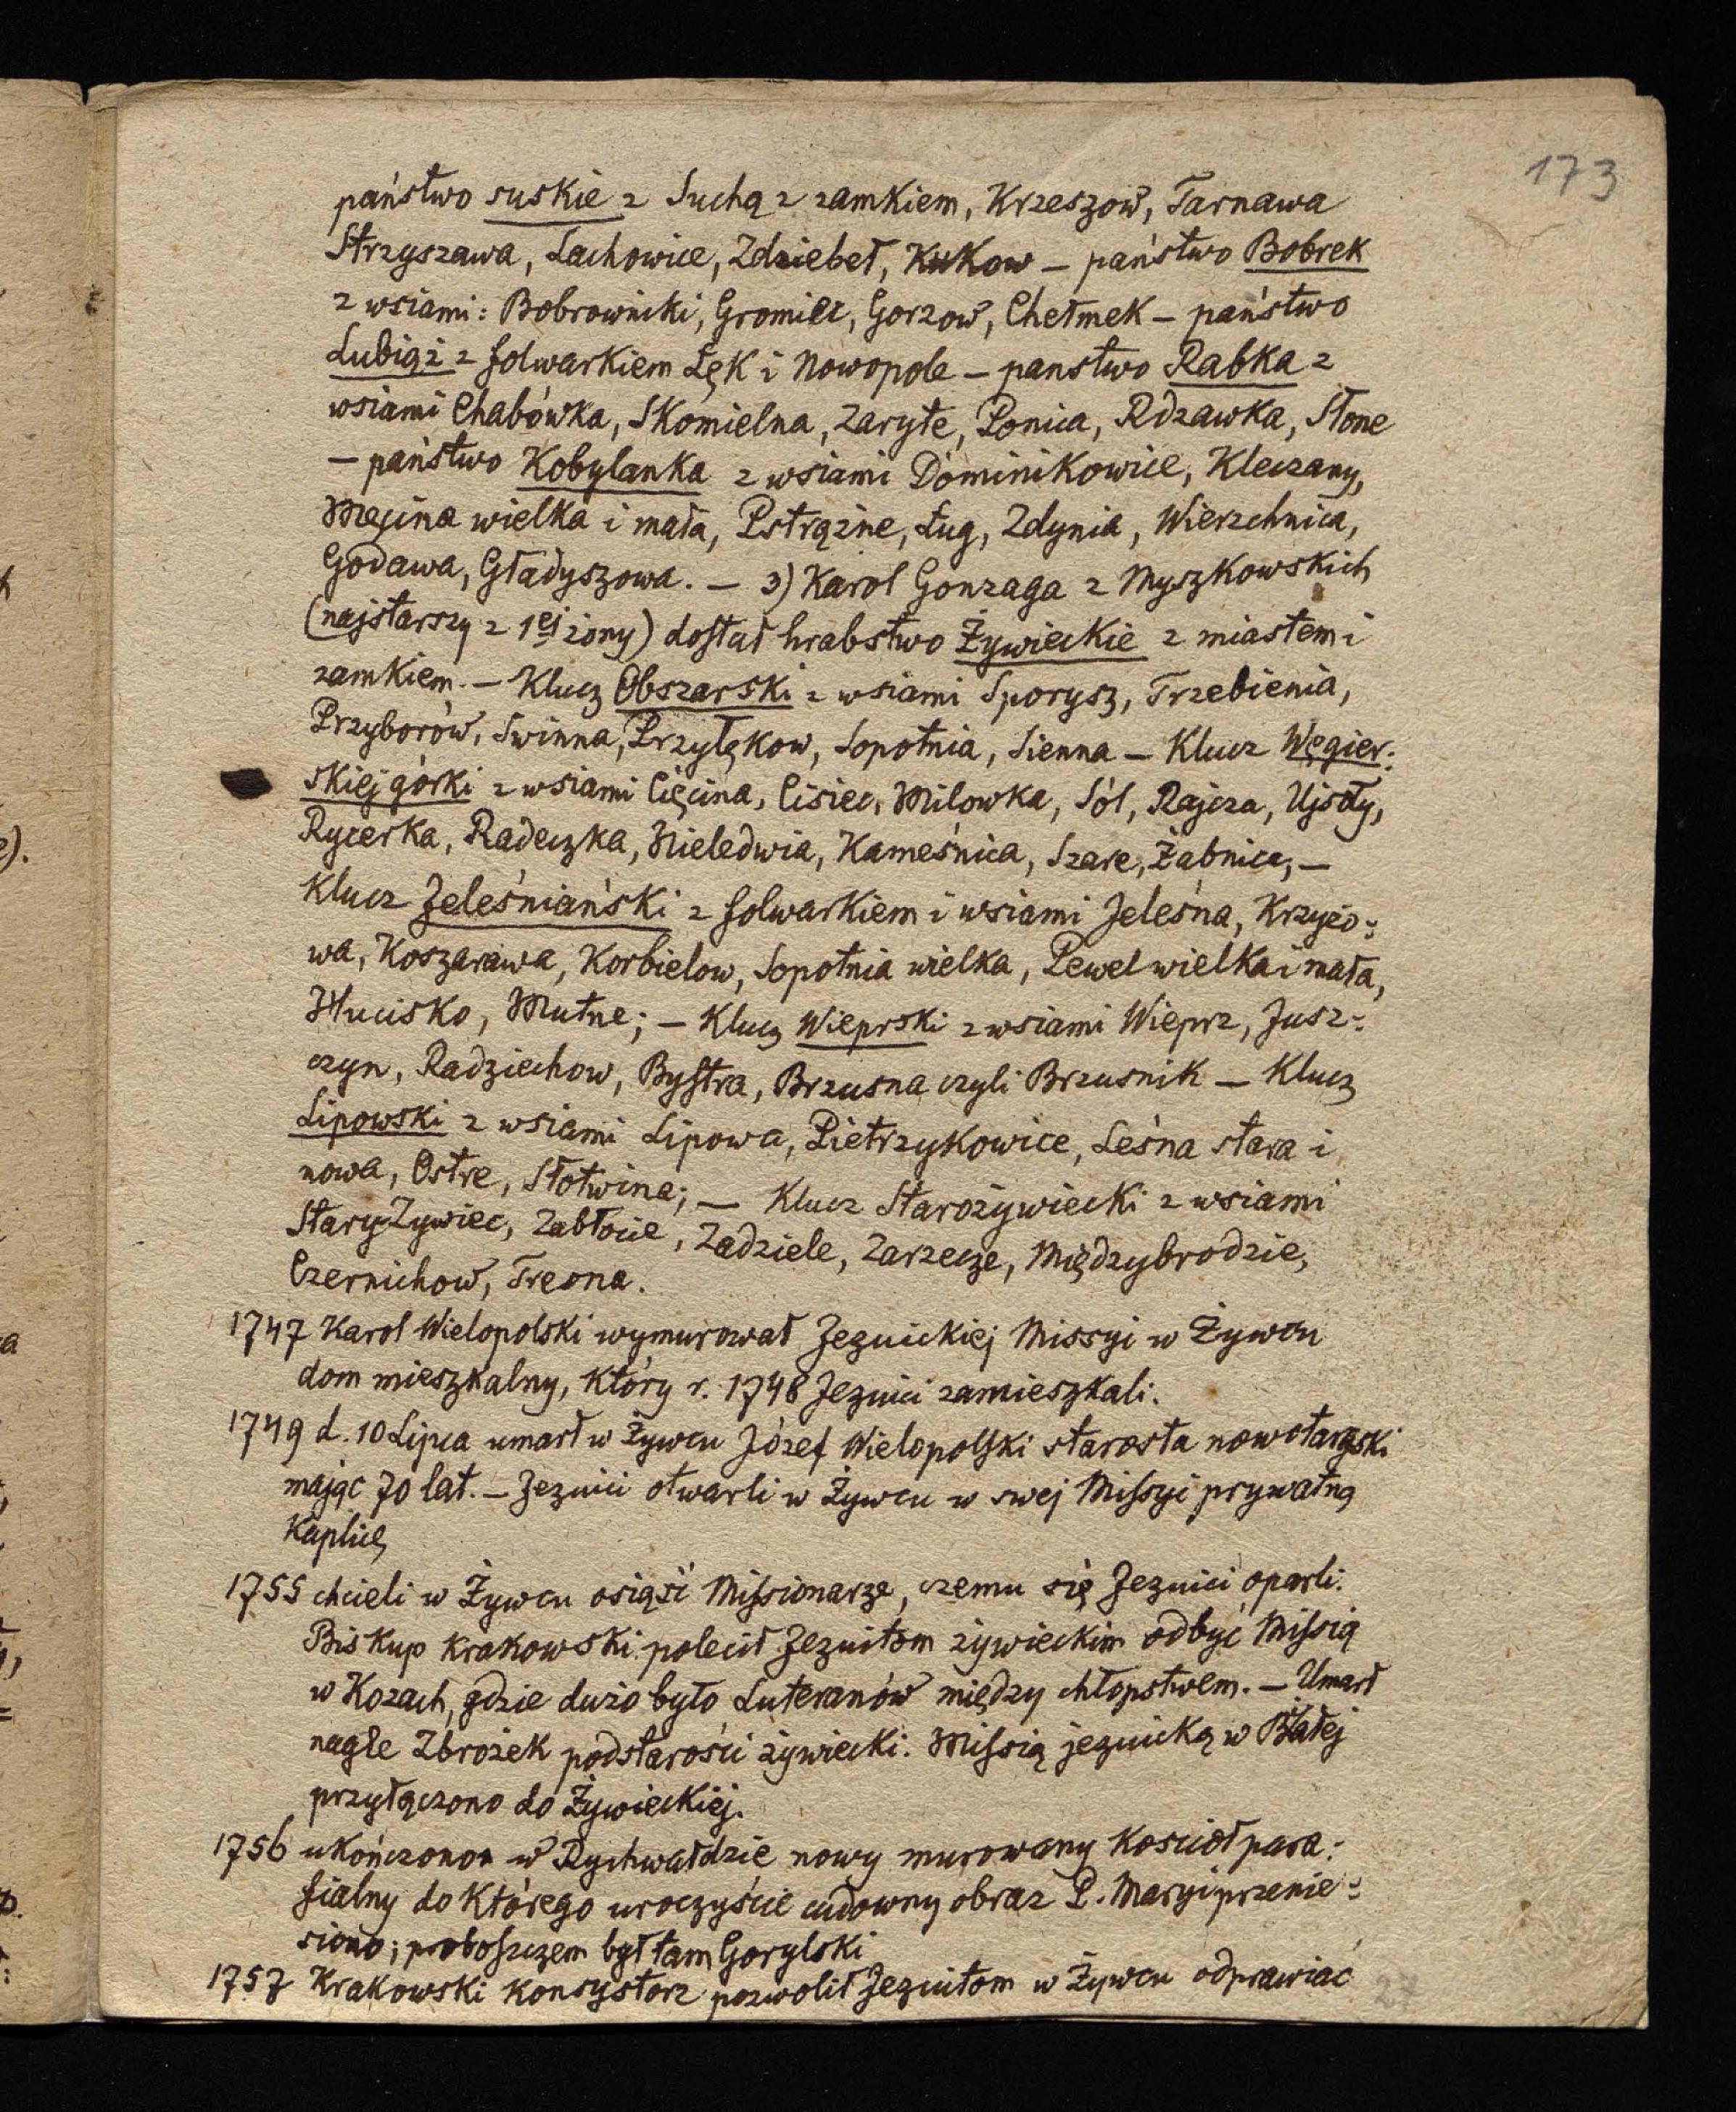 173
państwo suskie z Suchą z zamkiem, Krzeszow, Tarnawa
Strzyszawa, Lachowice, Zdziebeł, Kukow – państwo Bobrek
z wsiami: Bobrowniki, Gromiec, Gorzow, Chełmek – państwo
Lubiąż z folwarkiem Łęk i Nowopole – panstwo Rabka z
wsiami Chabówka, Skomielna, Zaryte, Ponica, Rdzawka, Słone
– państwo Kobylanka z wsiami Dominikowice, Kleczany,
Męcina wielka i mała, Pstrążne, Ług, Zdynia, Wierzchnica,
Godawa, Gładyszowa. – 3) Karol Gonzaga z Myszkowskich
(najstarszy z 1ej żony) dostał hrabstwo Żywieckie z miastem i
zamkiem. – Klucz Obszarski z wsiami Sporysz, Trzebienia,
Przyborów, Swinna, Przyłękow, Sopotnia, Sienna – Klucz Węgier:
skiej górki z wsiami Cięcina, Cisiec, Milowka, Sól, Rajcza, Ujsoły,
Rycerka, Radeczka, Nieledwia, Kameśnica, Szare, Żabnica, –
Klucz Jeleśniański z folwarkiem i wsiami Jeleśna, Krzyżo:
wa, Koszarawa, Korbielow, Sopotnia wielka, Pewel wielka i mała,
Hucisko, Mutne; – Klucz Wieprski z wsiami Wieprz, Jusz:
czyn, Radziechow, Bystra, Brzusna czyli Brzusnik – Klucz
Lipowski z wsiami Lipowa, Pietrzykowice, Leśna stara i
nowa, Ostre, Słotwina; – Klucz Starożywiecki z wsiami
Stary Żywiec, Zabłocie, Zadziele, Zarzecze, Międzybrodzie,
Czernichow, Tresna.
1747 Karol Wielopolski wymurował Jezuickiej Missyi w Żywcu
dom mieszkalny, który r. 1748 Jezuici zamieszkali.
1749 d. 10 Lipca umarł w Żywcu Józef Wielopolski starosta nowotarski
mając 70 lat. – Jezuici otwarli w Żywcu w swej Missyi prywatną
Kaplicę
1755 chcieli w Żywcu osiąść Missionarze, czemu się Jezuici oparli.
Biskup Krakowski polecił Jezuitom żywieckim odbyć Missią
w Kozach, gdzie dużo było Luteranów między chłopstwem. – Umarł
nagle Zbrożek podstarości żywiecki. Missią jezuicką w Białej
przyłączono do Żywieckiej.
1756 ukończono w Rychwałdzie nowy murowany Kosciół para:
fialny do Którego uroczyście cudowny obraz P. Maryi przenie:
siono; proboszczem był tam Gorylski
1757 Krakowski Konsystorz pozwolił Jezuitom w Żywcu odprawiać
27